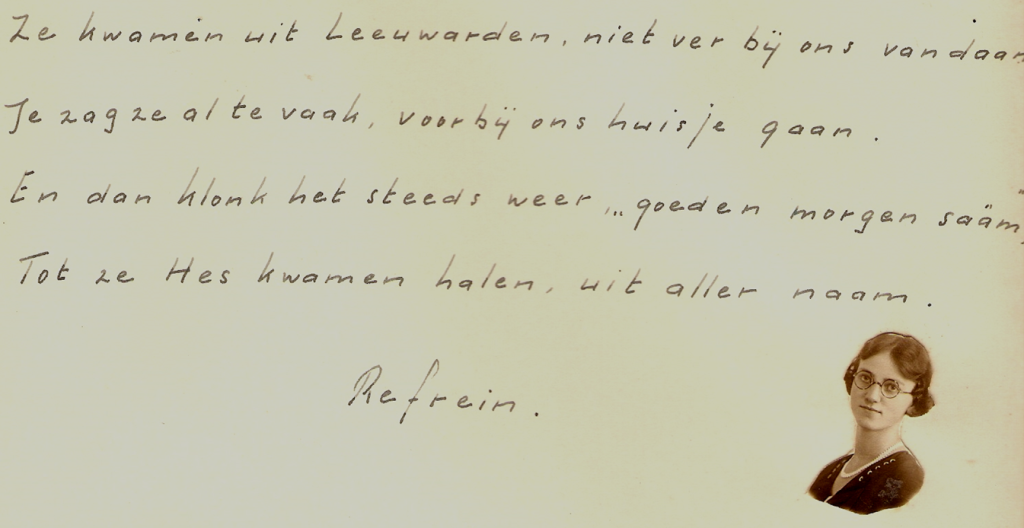 Ze kwamen uit Leeuwarden, niet ver bij ons vandaan
Je zag ze al te vaak, voorbij ons huisje gaan.
En dan klonk het steeds weer, „goeden morgen saäm"
Tot ze Hes kwamen halen, uit aller naam.
Refrein.